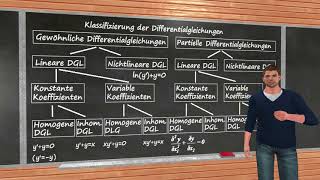 Klassifizierung der Differentialgleichungen
Gewöhnliche Differentialgleichungen
Partielle Differentialgleichungen
Lineare DGL
Nichtlineare DGL
Lineare DGL
Nichtlineare DGL
ln(y')+y=0
Konstante Koeffizienten
Variable Koeffizienten
Konstante Koeffizienten
Variable Koeffizienten
Homogene DGL
Inhom. DGL
Homogene DLG
Inhom. DGL
Homogene DGL
Inhom. DGL
Homogene
y'+y=0
y'+y=x
xy'+y=0
xy'+y=x
(y'=-y)